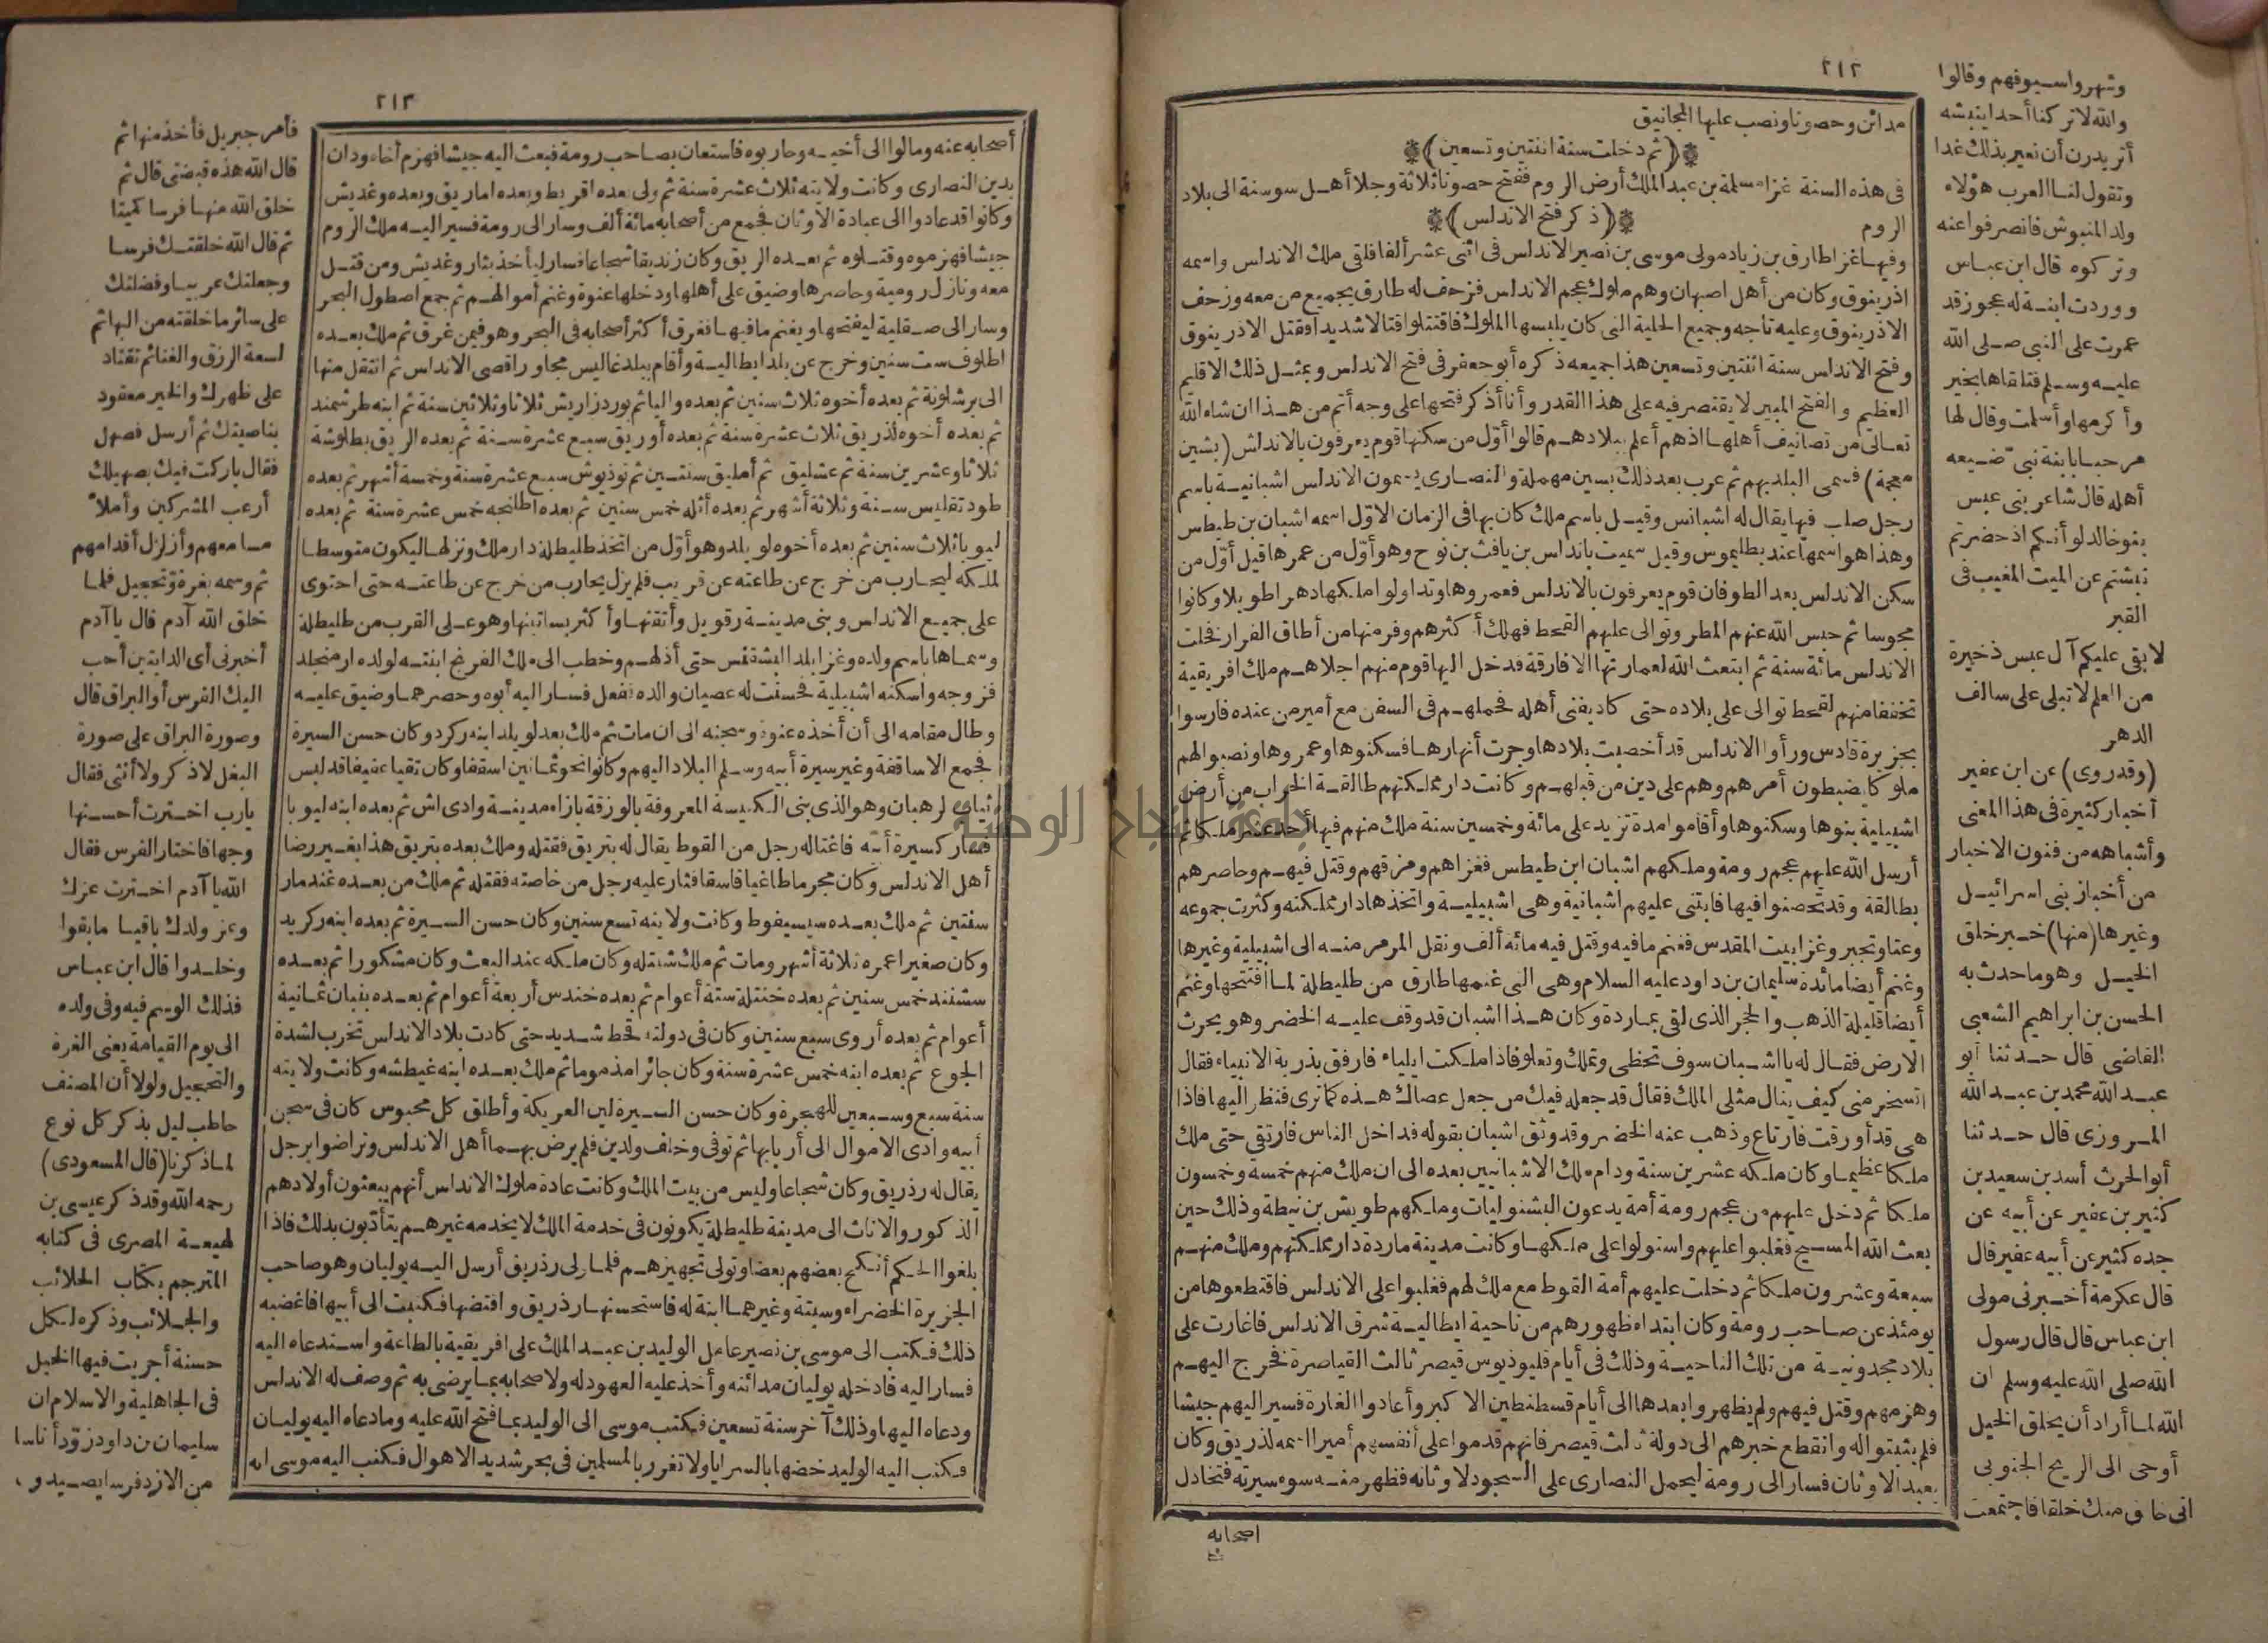 ٢١٢
مدائن وحصونا ونصب عليها المجانيق
﴿ثم دخلت سنة اثنتين وتسعين﴾
فى هذه السنة غزا مسلمة بن عبد الملك أرض الروم ففتح حصونا ثلاثة وجلا أهل سوسنة الى بلاد
الروم ﴿ذكر فتح الاندلس﴾
وفيها غزا طارق بن زياد مولى موسى بن نصير الاندلس فى اثنى عشر ألفا فلقى ملك الاندلس واسمه
اذرينوق وكان من أهل اصبهان وهم ملوك عجم الاندلس فزحف له طارق بجميع من معه وزحف
الاذرينوق وعليه تاجه وجميع الحلية التى كان يلبسها الملوك فاقتتلوا قتالا شديدا فقتل الاذرينوق
وفتح الاندلس سنة اثنتين وتسعين هذا جميعه ذكره أبو جعفر فى فتح الاندلس وبمثل ذلك الاقليم
العظيم والفتح المبين لا يقتصر فيه على هذا القدر وأنا أذكر فتحها على وجه أتم من هذا ان شاء الله
تعالى من تصانيف أهلها اذهم أعلم ببلادهم قالوا أول من سكنها قوم يعرفون بالاندلش (بشين
معجمة) فسمى البلد بهم ثم عرب بعد ذلك بسين مهملة والنصارى يسمون الاندلس اشبانية باسم
رجل صلب فيها يقال له اشبانس وقيل باسم ملك كان بها فى الزمان الاول اسمه اشبان بن طيطس
وهذا هو اسمها عند بطليموس وقيل سميت باندلس بن يافث بن نوح وهو أول من عمرها قيل أول من
سكن الاندلس بعد الطوفان قوم يعرفون بالاندلس فعمروها وتداولوا ملكها دهرا طويلا وكانوا
مجوسا ثم حبس الله عنهم المطر وتوالى عليهم القحط فهلك أكثرهم وفر منها من أطاق الفرار فخلت
الاندلس مائة سنة ثم ابتعث الله لعمارتها الافارقة فدخل اليها قوم منهم اجلاهم ملك افريقية
تخففا منهم لقحط توالى على بلاده حتى كاد يفنى أهله فحملهم فى السفن مع أمير من عنده فارسوا
بجزيرة قادس ورأوا الاندلس قد أخصبت بلادها وجرت أنهارها فسكنوها وعمروها ونصبوا لهم
ملوكا يضبطون أمرهم وهم على دين من قبلهم وكانت دار مملكتهم طالقة الخراب من أرض
اشبيلية بنوها وسكنوها وأقاموا مدة تزيد على مائة وخمسين سنة ملك منهم فيها أحد عشر ملكا ثم
أرسل الله عليهم عجم رومة وملكهم اشبان ابن طيطس فغزاهم ومزقهم وقتل فيهم وحاصرهم
بطالقة وقد تحصنوا فيها فابتنى عليهم اشبانية وهى اشبيلية واتخذها دار مملكته وكثرت جموعه
وعتا وتجبر وغزا بيت المقدس فغنم ما فيه وقتل فيه مائة ألف ونقل المرمر منه الى اشبيلية وغيرها
وغنم أيضا مائدة سليمان بن داود عليه السلام وهى التى غنمها طارق من طليطلة لما افتتحها وغنم
أيضا قليلة الذهب والحجر الذى لقى بماردة وكان هذا اشبان قد وقف عليه الخضر وهو يحرث
الارض فقال له يا اشبان سوف تحظى وتملك وتعلو فاذا ملكت ايلياء فارفق بذرية الانبياء فقال
اتسخر منى كيف ينال مثلى الملك فقال قد جعله فيك من جعل عصاك هذه كما ترى فنظر اليها فاذا
هى قد أورقت فارتاع وذهب عنه الخضر وقد وثق اشبان بقوله فداخل الناس فارتقى حتى ملك
ملكا عظيما وكان ملكه عشرين سنة ودام ملك الاشبانيين بعده الى ان ملك منهم خمسة وخمسون
ملكا ثم دخل عليهم من عجم رومة أمة يدعون البشنوليات وملكهم طويش بن نيطة وذلك حين
بعث الله المسيح فغلبوا عليهم واستولوا على ملكها وكانت مدينة ماردة دار مملكتهم وملك منهم
سبعة وعشرون ملكا ثم دخلت عليهم أمة القوط مع ملك لهم فغلبوا على الاندلس فاقتطعوها من
يومئذ عن صاحب رومة وكان ابتداء ظهورهم من ناحية ايطالية شرق الاندلس فاغارت على
بلاد مجدونية من تلك الناحية وذلك فى أيام قليوذيوس قيصر ثالث القياصرة فخرج اليهم
وهزمهم وقتل فيهم ولم يظهروا بعدها الى أيام قسطنطين الاكبر وأعادوا الغارة فسير اليهم جيشا
فلم يثبتوا له وانقطع خبرهم الى دولة ثالث قيصر فانهم قدموا على أنفسهم أميرا اسمه لذريق وكان
يعبد الاوثان فسار الى رومة ليحمل النصارى على السجود لاوثانه فظهر منه سوء سيرته فتخاذل
اصحابه
وشهروا سيوفهم وقالوا
والله لا تركنا أحدا ينبشه
أتريدون أن نعير بذلك غدا
وتقول لنا العرب هؤلاء
ولد المنبوش فانصرفوا عنه
وتركوه قال ابن عباس
ووردت ابنة له عجوز قد
عمرت على النبى صلى الله
عليه وسلم فتلقاها بخير
وأكرمها وأسلمت وقال لها
مرحبا بابنة نبى ضيعه
أهله قال شاعر بنى عبس
بنو خالد لو أنكم اذ حضرتم
نبشتم عن الميت المغيب فى
القبر
لا بقى عليكم آل عبس ذخيرة
من العلم لا تبلى على سالف
الدهر
(وقد روى) عن ابن عفير
أخبار كثيرة فى هذا المعنى
وأشباهه من فنون الاخبار
من أخبار بنى اسرائيل
وغيرها (منها) خبر خلق
الخيل وهو ما حدث به
الحسن بن ابراهيم الشعبى
القاضى قال حدثنا أبو
عبد الله محمد بن عبد الله
المروزى قال حدثنا
أبو الحرث أسد بن سعيد بن
كثير بن عفير عن أبيه عن
جده كثير عن أبيه عفير قال
قال عكرمة أخبرنى مولى
ابن عباس قال قال رسول
الله صلى الله عليه وسلم ان
الله لما أراد أن يخلق الخيل
أوحى الى الريح الجنوبى
انى خالق منك خلقا فاجتمعت
٢١٣
أصحابه عنه ومالوا الى أخيه وحاربوه فاستعان بصاحب رومة فبعث اليه جيشا فهزم أخاه ودان
بدين النصارى وكانت ولايته ثلاث عشرة سنة ثم ولى بعده اقريط وبعده اماريق وبعده وغديش
وكانوا قد عادوا الى عبادة الاوثان فجمع من أصحابه مائة ألف وسار الى رومة فسير اليه ملك الروم
جيشا فهزموه وقتلوه ثم بعده الريق وكان زنديقا شجاعا فسار ليأخذ بثار وغديش ومن قتل
معه ونازل رومية وحاصرها وضيق على أهلها ودخلها عنوة وغنم أموالهم ثم جمع اصطول البحر
وسار الى صقلية ليفتحها ويغنم ما فيها فغرق أكثر أصحابه فى البحر وهو فيمن غرق ثم ملك بعده
اطلوف ست سنين وخرج عن بلد ايطالية وأقام ببلد غاليس مجاورا قصى الاندلس ثم انتقل منها
الى برشلونة ثم بعده أخوه ثلاث سنين ثم بعده واليا ثم بوردزاريش ثلاثا وثلاثين سنة ثم ابنه طرشمند
ثم بعده أخوه لذريق ثلاث عشرة سنة ثم بعده أوريق سبع عشرة سنة ثم بعده الريق بطلوشة
ثلاثا وعشرين سنة ثم عشليق ثم أمليق سنتين ثم توذيوش سبع عشرة سنة وخمسة أشهر ثم بعده
طودتقليس سنة وثلاثة أشهر ثم بعده أثله خمس سنين ثم بعده اطلنجه خمس عشرة سنة ثم بعده
ليوبا ثلاث سنين ثم بعده أخوه لويلد وهو أول من اتخذ طليطلة دار ملك ونزلها ليكون متوسطا
لملكه ليحارب من خرج عن طاعته عن قريب فلم يزل يحارب من خرج عن طاعته حتى احتوى
على جميع الاندلس وبنى مدينة رقوبل وأتقنها وأكثر بساتينها وهو على القرب من طليطلة
وسماها باسم ولده وغزا بلد البشقنس حتى أذلهم وخطب الى ملك الفرنج ابنته لولده ارمنجلد
فزوجه وأسكنه اشبيلية فحسنت له عصيان والده ففعل فسار اليه أبوه وحصرهما وضيق عليه
وطال مقامه الى أن أخذه عنوة وسجنه الى ان مات ثم ملك بعد لويلد ابنه ركرد وكان حسن السيرة
فجمع الاساقفة وغير سيرة أبيه وسلم البلاد اليهم وكانوا نحو ثمانين اسقفا وكان تقيا عفيفا قد لبس
ثياب الرهبان وهو الذى بنى الكنيسة المعروفة بالوزقة بازاء مدينة وادى اش ثم بعده ابنه ليوبا
فسار كسيرة أبيه فاغتاله رجل من القوط يقال له بتريق فقتله وملك بعده بتريق هذا بغير رضا
أهل الاندلس وكان مجرما طاغيا فاسقا فثار عليه رجل من خاصته فقتله ثم ملك من بعده غندمار
سنتين ثم ملك بعده سيسيفوط وكانت ولايته تسع سنين وكان حسن السيرة ثم بعده ابنه ركريد
وكان صغيرا عمره ثلاثة أشهر ومات ثم ملك شنتله وكان ملكه عند البعث وكان مشكورا ثم بعده
سشنند خمس سنين ثم بعده خنتلة ستة أعوام ثم بعده خندس أربعة أعوام ثم بعده بنبان ثمانية
أعوام ثم بعده أروى سبع سنين وكان فى دولته قحط شديد حتى كادت بلاد الاندلس تخرب لشدة
الجوع ثم بعده ابنه خمس عشرة سنة وكان جائرا مذموما ثم ملك بعده ابنه غيطشه وكانت ولايته
سنة سبع وسبعين للهجرة وكان حسن السيرة لين العريكة وأطلق كل محبوس كان فى سجن
أبيه وأدى الاموال الى أربابها ثم توفى وخلف ولدين فلم يرض بهما أهل الاندلس وتراضوا برجل
يقال له رذريق وكان شجاعا وليس من بيت الملك وكانت عادة ملوك الاندلس أنهم يبعثون أولادهم
الذكور والاناث الى مدينة طليطلة يكونون فى خدمة الملك لا يخدمه غيرهم يتأدبون بذلك فاذا
بلغوا الحكم أنكح بعضهم بعضا وتولى تجهيزهم فلما ولى رذريق أرسل اليه يوليان وهو صاحب
الجزيرة الخضراء وسبتة وغيرهما ابنة له فاستحسنها رذريق وافتضها فكتبت الى أبيها فاغضبه
ذلك فكتب الى موسى بن نصير عامل الوليد بن عبد الملك على افريقية بالطاعة واستدعاه اليه
فسار اليه فادخله يوليان مدائنه وأخذ عليه العهود له ولاصحابه بما يرضى به ثم وصف له الاندلس
ودعاه اليها وذلك آخر سنة تسعين فكتب موسى الى الوليد بما فتح الله عليه وما دعاه اليه يوليان
فكتب اليه الوليد خضها بالسرايا ولا تغرر بالمسلمين فى بحر شديد الاهوال فكتب اليه موسى انه
فأمر جبريل فأخذ منها ثم
قال الله هذه قبضتى قال ثم
خلق الله منها فرسا كميتا
ثم قال الله خلقتك فرسا
وجعلتك عربيا وفضلتك
على سائر ما خلقته من البهائم
لسعة الرزق والغنائم تقتاد
على ظهرك والخير معقود
بناصيتك ثم أرسل فصهل
فقال باركت فيك بصهيلك
أرعب المشركين وأملأ
مسامعهم وأزلزل أقدامهم
ثم وسمه بغرة وتحجيل فلما
خلق الله آدم قال يا آدم
أخبرنى أى الدابتين أحب
اليك الفرس أو البراق قال
وصورة البراق على صورة
البغل لا ذكر ولا أنثى فقال
يارب اخترت أحسنها
وجها فاختار الفرس فقال
الله يا آدم اخترت عزك
وعز ولدك باقيا ما بقوا
وخلدوا قال ابن عباس
فذلك الوسم فيه وفى ولده
الى يوم القيامة يعنى الغرة
والتحجيل ولولا أن المصنف
حاطب ليل يذكر كل نوع
لما ذكرنا (قال المسعودى)
رحمه الله وقد ذكر عيسى بن
لهيعة المصرى فى كتابه
المترجم بكتاب الحلائب
والجلائب وذكره لكل
حسنة أجريت فيها الخيل
فى الجاهلية والاسلام ان
سليمان بن داود زود أناسا
من الازد فرسا يصيدو
جامعة النجاح الوطنية